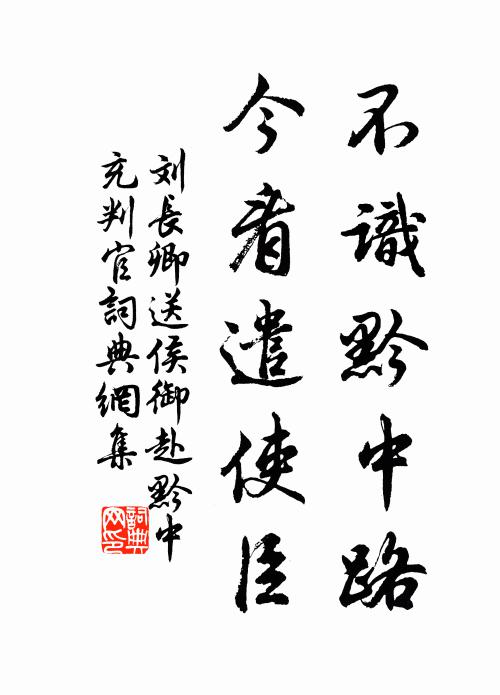 不識黔中路
今看遣使臣
刘長卿送侯御赴黔中
充判官詞典網集
詞典
网印